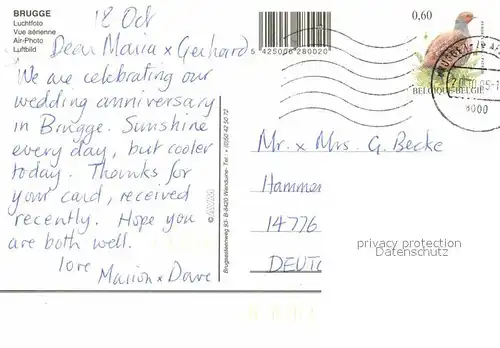 BRUGGE
Luchtfoto
Vue aérienne
Air-Photo
Luftbild
18 Oct
Dear Maria x Gerhard
We are celebrating our
wedding anniversary
in Brugge. Sunshine
every day, but cooler
today. Thanks for
your card, received
recently. Hope you
are both well.
love
Marion x Dave
5 425006 280020
0,60
BELGIQUE-BELGIË
8000
Mr. x Mrs. G. Becke
Hammer
14776
DEUT
privacy protection
Datenschutz